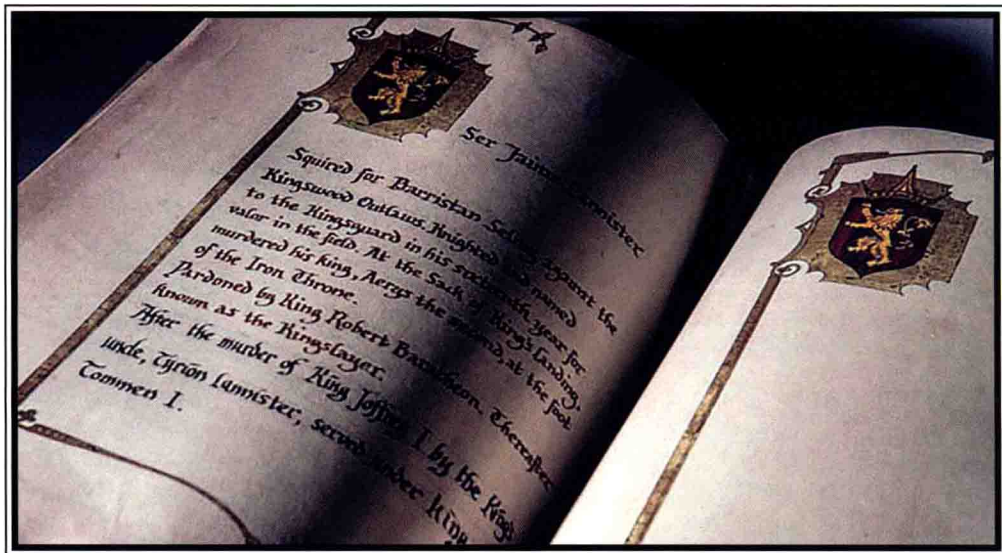 Ser Jaime Lannister
Squired for Barristan Selmy against the
Kingswood Outlaws. Knighted and named
to the Kingsguard in his sixteenth year for
valor in the field. At the Sack of King's Landing,
murdered his king, Aerys the second, at the foot
of the Iron Throne.
Pardoned by King Robert Baratheon. Thereafter
known as the Kingslayer.
After the murder of King Joffrey I by the King's
uncle, Tyrion Lannister, served under King
Tommen I.